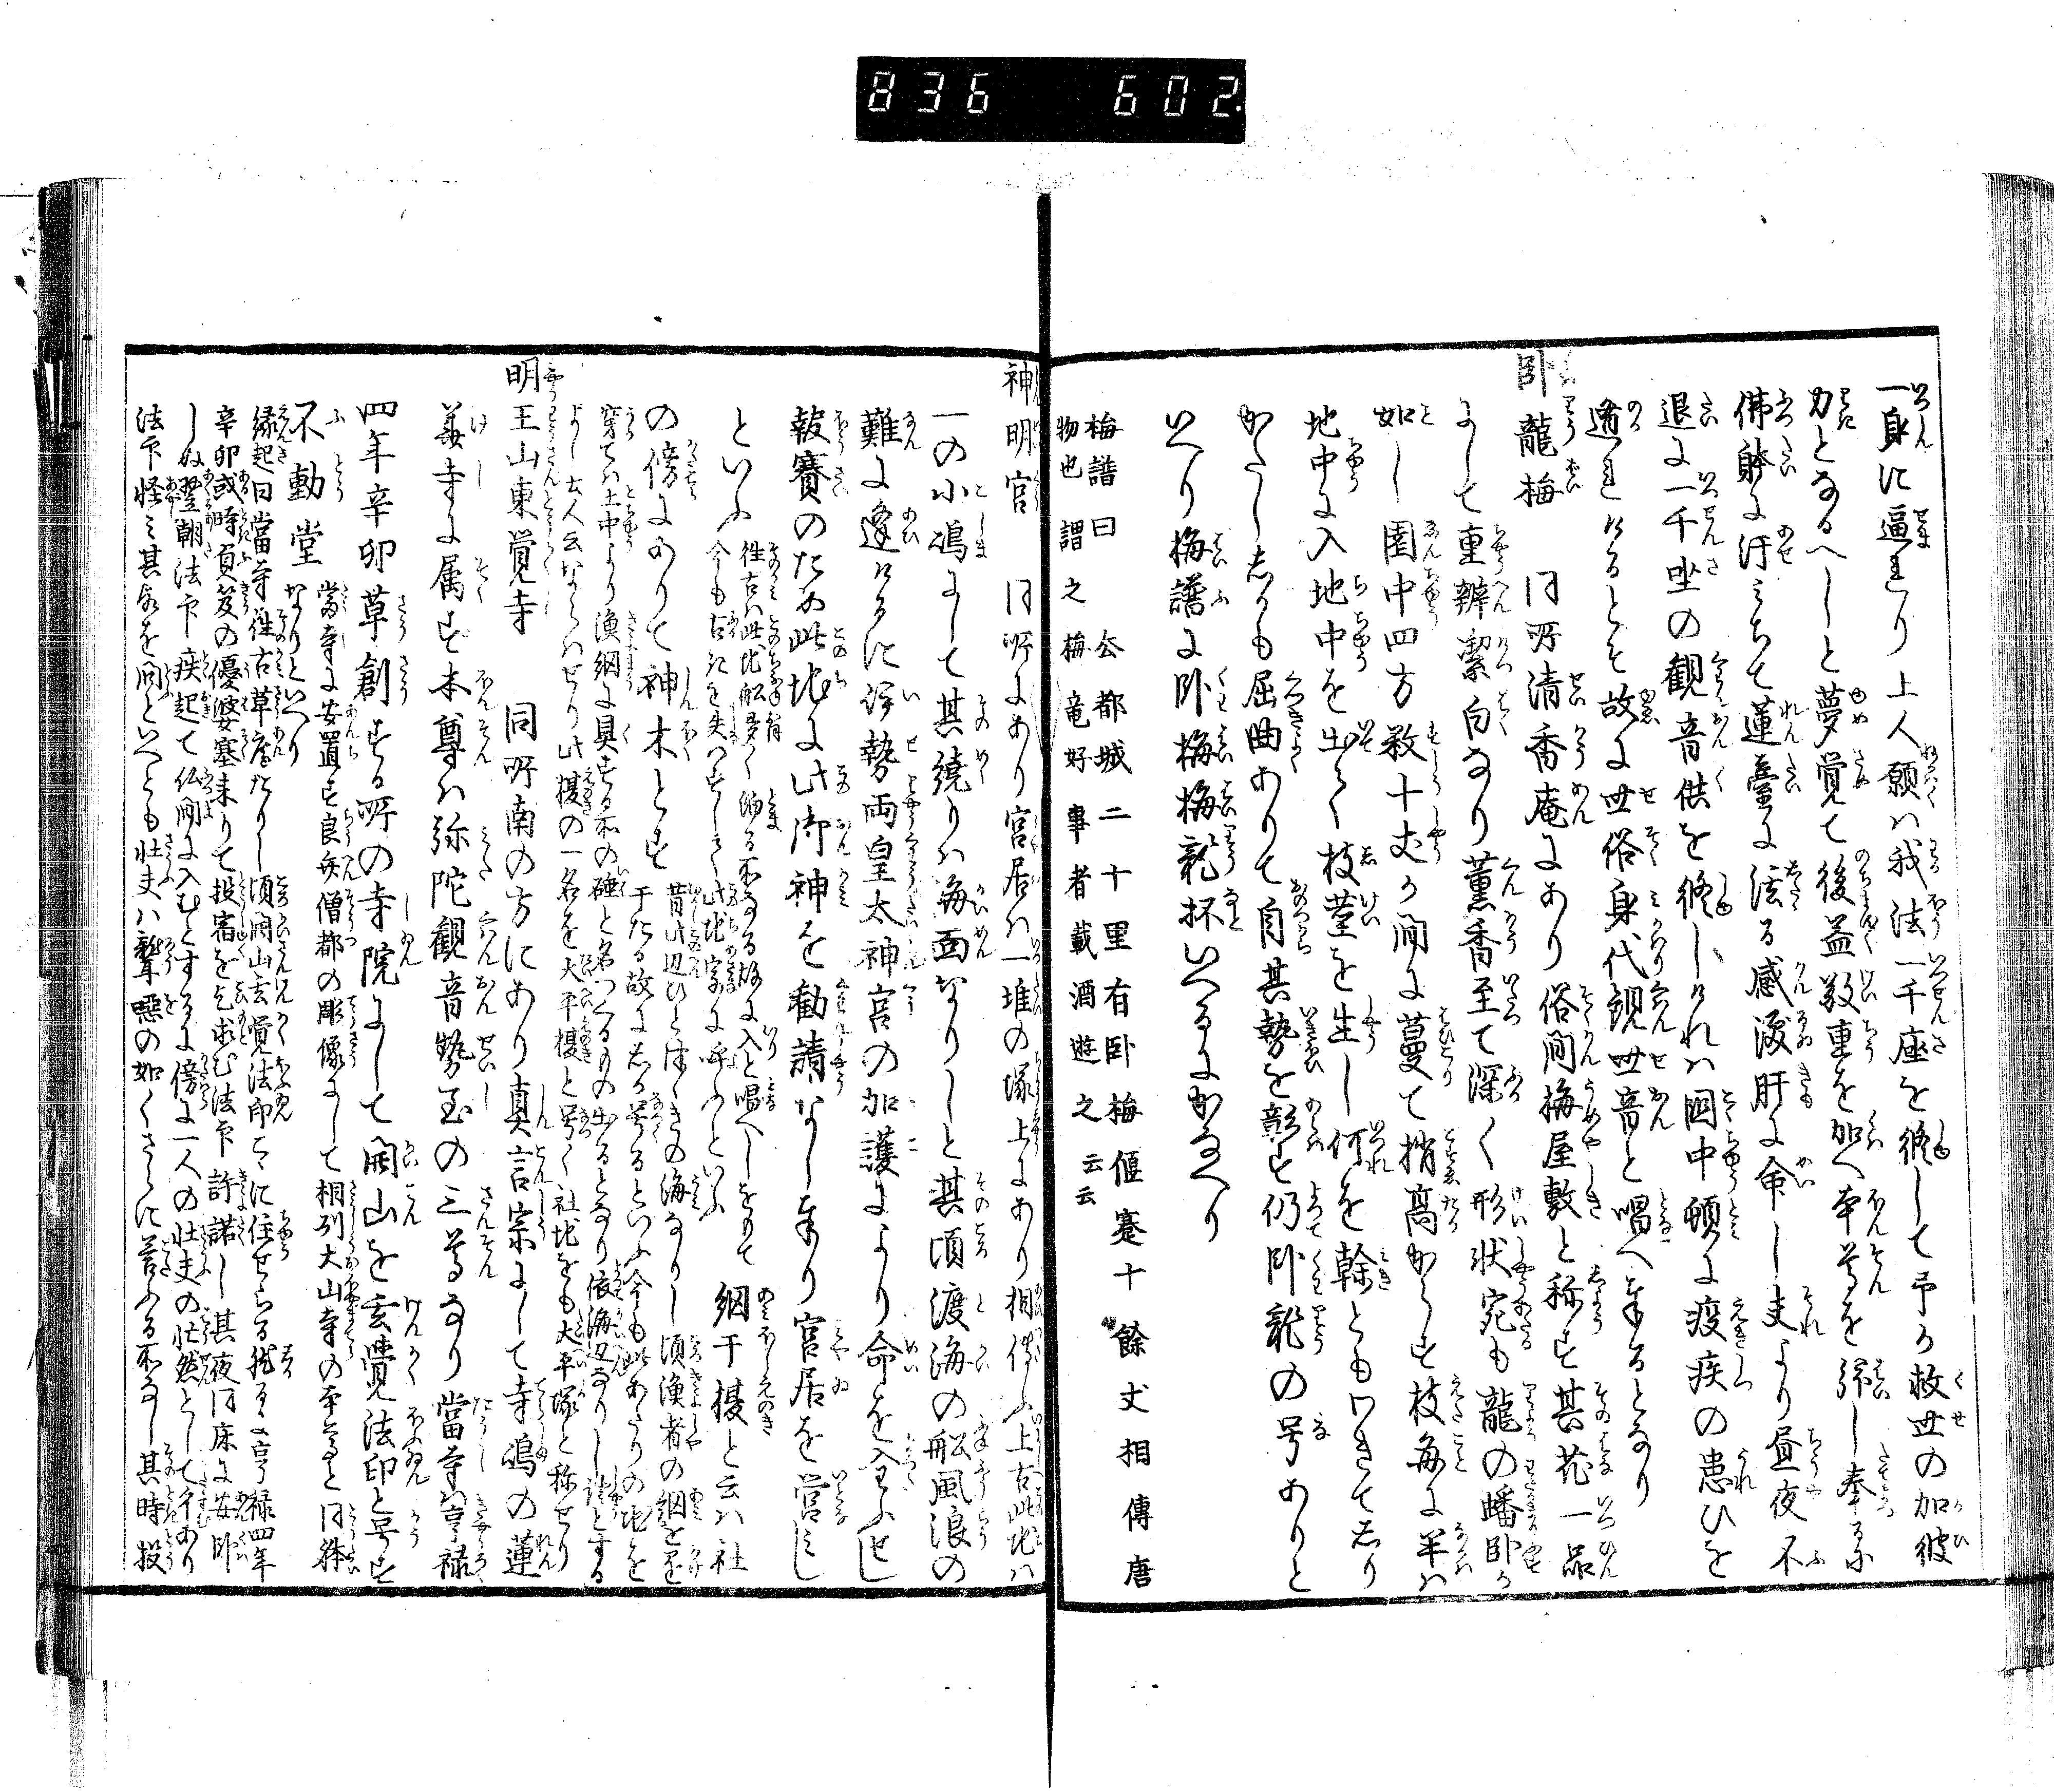 836 602
一身に逼まり上人願くハ我法一千座を修して予か救世の加彼
力となるへしと夢覚て後益敬重を加へ本尊を拝し奉るに
佛躰に汗ミちて蓮臺に滴る感涙肝に命し夫より昼夜不
退に一千坐の観音供を修しけれハ国中頓に疫疾の患ひを
遁れけるとそ故に世俗身代観世音と唱へ奉るとなり
卧龍梅 同所清香庵にあり俗間梅屋敷と称す其花一品
にして重辨潔白なり薫香至て深く形状宛も龍の蟠卧か
如し園中四方数十丈か間に蔓て梢高からす枝毎に半ハ
地中に入地中を出て枝莖を生し何を幹ともわきてしり
かたししかも屈曲ありて自其勢を彰す仍卧龍の号ありと
いへり梅譜に卧梅梅龍抔いへるにかなへり
梅譜曰 公都城二十里有卧梅偃蹇十餘丈相傳唐
物也謂之梅竜好事者載酒遊之云云
神明宮 同所にあり宮居ハ一堆の塚上にあり相傳ふ上古此地ハ
一の小嶋にして其繞りハ海面なりしと其頃渡海の船風浪の
難に逢けるに伊勢両皇太神宮の加護により命を全ふせし
報賽のため此地に此御神を勧請なし奉り宮居を営ミし
といふ 往古ハ此地船多く泊る所なる故に入と唱へしをもて
今も古きを失ハすして此地字に呼ふといふ 網干榎と云ハ社
の傍にありて神木とす 昔此辺ひとつゝきの海なりし頃漁者の網を
干たる故にしか号るといふ今も此あたりの地を
穿てハ土中より漁網に具する所の碇と名つくるもの出るとなり依海辺なりし證とする
によし土人云ならハせり此榎の一名を大平榎と号く社地をも大平塚と称せり
明王山東覚寺 同所南の方にあり真言宗にして寺嶋の蓮
華寺に属す本尊ハ弥陀観音勢至の三尊なり當寺ハ享禄
四年辛卯草創する所の寺院にして開山を玄覺法印と号す
不動堂 當寺に安置す良弁僧都の彫像にして相列大山寺の本尊と同躰
なりといへり
縁起曰當寺往古草庵たりし頃開山玄覚法印こゝに住せらる然るに享禄四年
辛卯或時負笈の優婆塞来りて投宿を乞求む法印許諾し其夜同床に安卧
しぬ翌朝法印疾起て仏間に入むとするに傍に一人の壮夫の壮然として彳あり
法印怪ミ其故を問といへとも壮夫ハ聾唖の如くさらに荅ふる所なし其時投